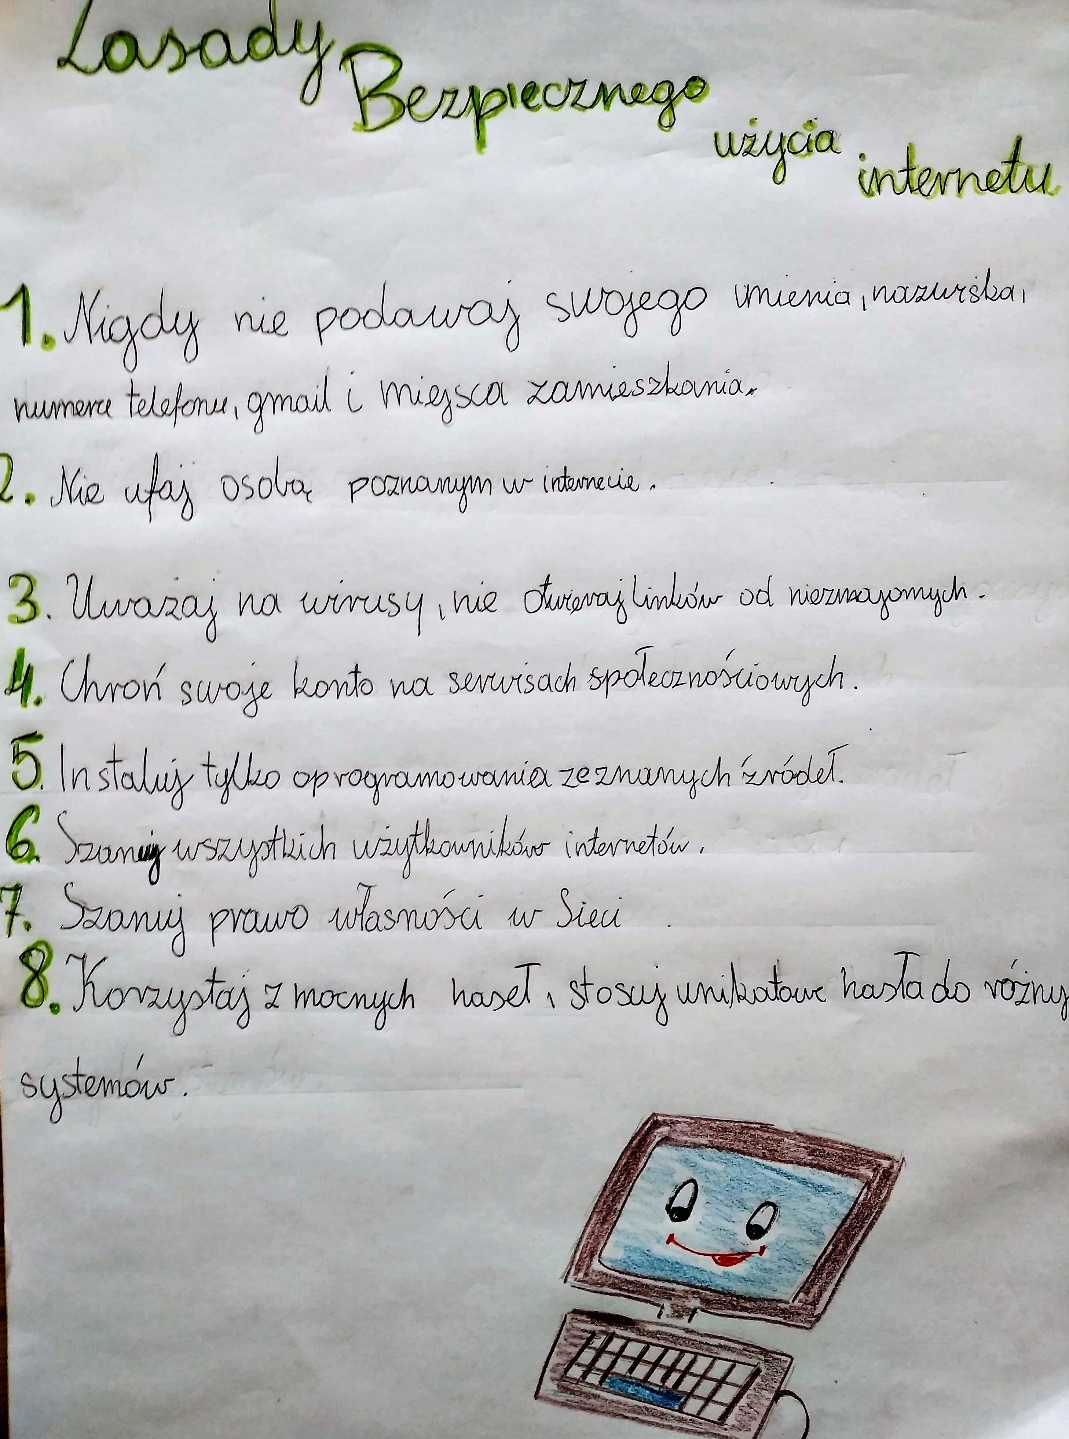 Zasady
Bezpiecznego
użycia
internetu
1. Nigdy nie podawaj swojego imienia, nazwiska,
numeru telefonu, gmail i miejsca zamieszkania.
2. Nie ufaj osobą poznanym w internecie.
3. Uważaj na wirusy, nie otwieraj linków od nieznajomych.
4. Chroń swoje konto na serwisach społecznościowych.
5. Instaluj tylko oprogramowania ze znanych źródeł.
6. Szanuj wszystkich użytkowników internetów.
7. Szanuj prawo własności w Sieci.
8. Korzystaj z mocnych haseł, stosuj unikatowe hasła do różny
systemów.